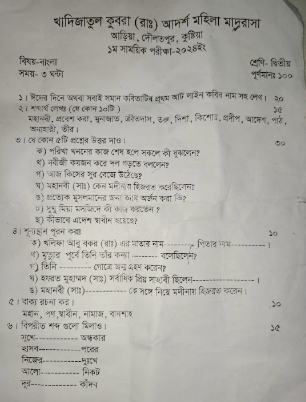 খাদিজাতুল কুবরা (রাঃ) আদর্শ মহিলা মাদ্রাসা
আড়িয়া, দৌলতপুর, কুষ্টিয়া
১ম সাময়িক পরীক্ষা-২০২৪ইং
বিষয়-বাংলা শ্রেণি- দ্বিতীয়
সময়- ৩ ঘন্টা পূর্ণমানঃ ১০০
১। ঈদের দিনে অথবা সবাই সমান কবিতাটির প্রথম আট লাইন কবির নাম সহ লেখ। ২০
২। শব্দার্থ লেখঃ (যে কোন ১০টি) ১০
মহানবী, প্রবেশ করা, মুনাজাত, ক্রীতদাস, তরু, দিশা, কিশোর, প্রদীপ, আদেশ, পাঠ,
অনাহারী, তীর।
৩। যে কোন ৫টি প্রশ্নের উত্তর দাও। ৩০
ক) পরিখা খননের কাজ শেষ হলে সকলে কী বুঝলেন?
খ) নবীজী কয়জন করে দল গড়তে বললেন?
গ) আজ কিসের সুর বেজে উঠেছে?
ঘ) মহানবী (সাঃ) কেন মদীনায় হিজরত করেছিলেন?
ঙ) প্রত্যেক মুসলমানের জন্য জ্ঞান অর্জন করা কি?
চ) মসজিদে কী করতেন ?
ছ) কীভাবে এদেশ স্বাধীন হয়েছে?
৪। শূন্যস্থান পূরন করা ১০
ক) খলিফা আবু বকর (রাঃ) এর মাতার নাম--------, পিতার নাম--------।
খ) মৃত্যুর পূর্বে তিনি তাঁর কন্যা -------- বলেছিলেন?
গ) তিনি -------- গোত্রে জন্ম গ্রহন করেন?
ঘ) হযরত মুহাম্মদ (সাঃ) সর্বাধিক প্রিয় সাহাবী ছিলেন------------।
ঙ) মহানবী (সাঃ)------------ কে সঙ্গে নিয়ে মদীনায় হিজরত করেন।
৫। বাক্য রচনা কর। ১০
মহান, পণ, স্বাধীন, নামাজ, বাদশাহ
৬। বিপরীত শব্দ গুলো মিলাও। ১৫
সুখে------------ অন্ধকার
হাসব------------পরের
নিজের------------দুঃখে
আলো------------ নিকট
দূর------------ কাঁদব